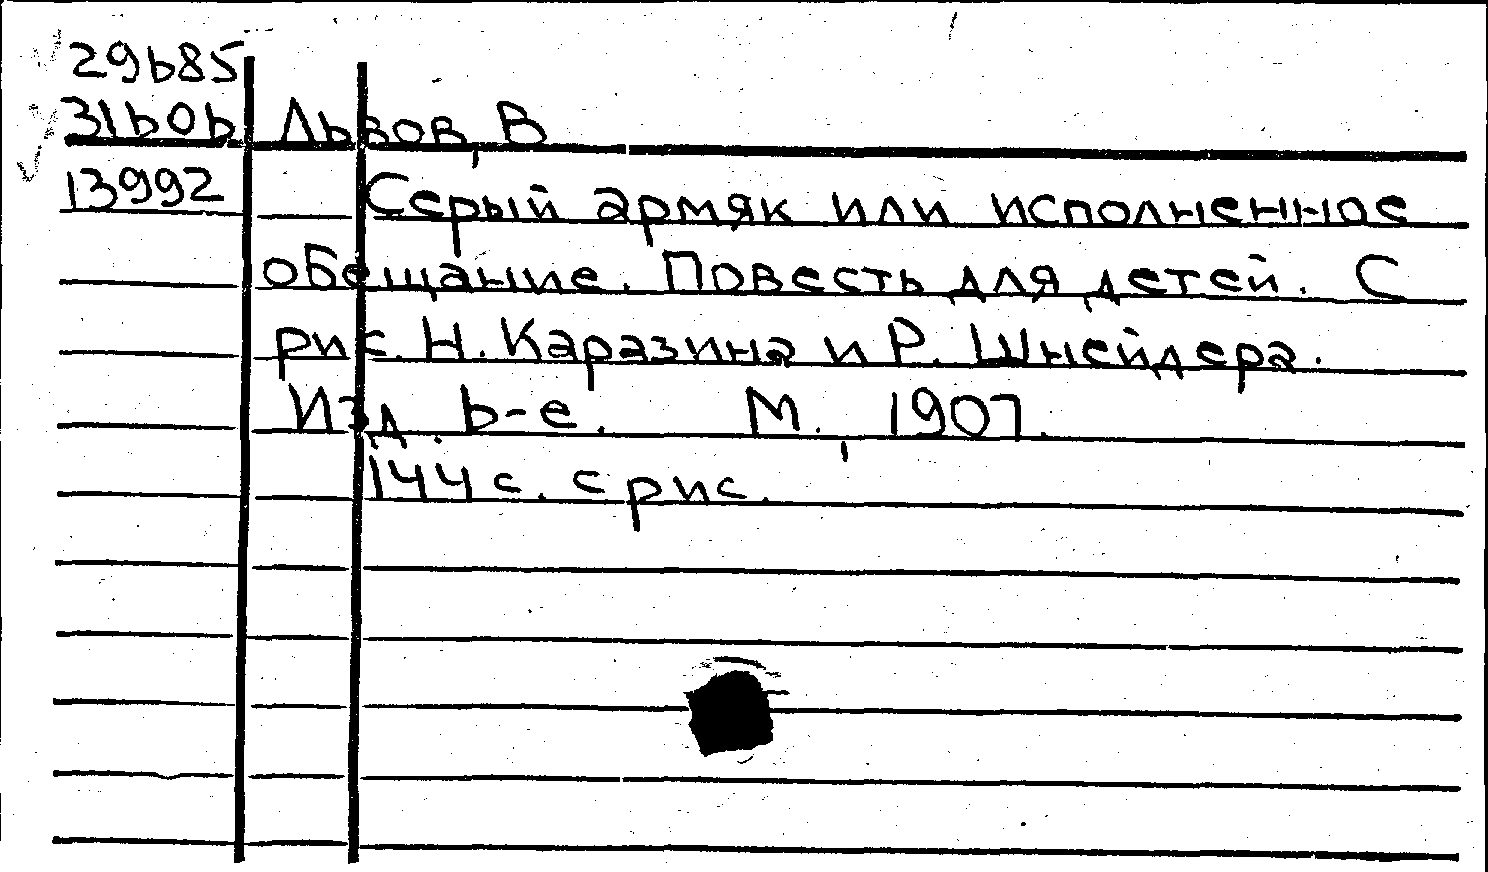 29685
31606 Львов, В
13992 Серый армяк или исполненное
обещание. Повесть для детей. С
рис. Н. Каразина и Р. Шнейдера.
Изд. 6-е. М., 1907.
144 с. с рис.